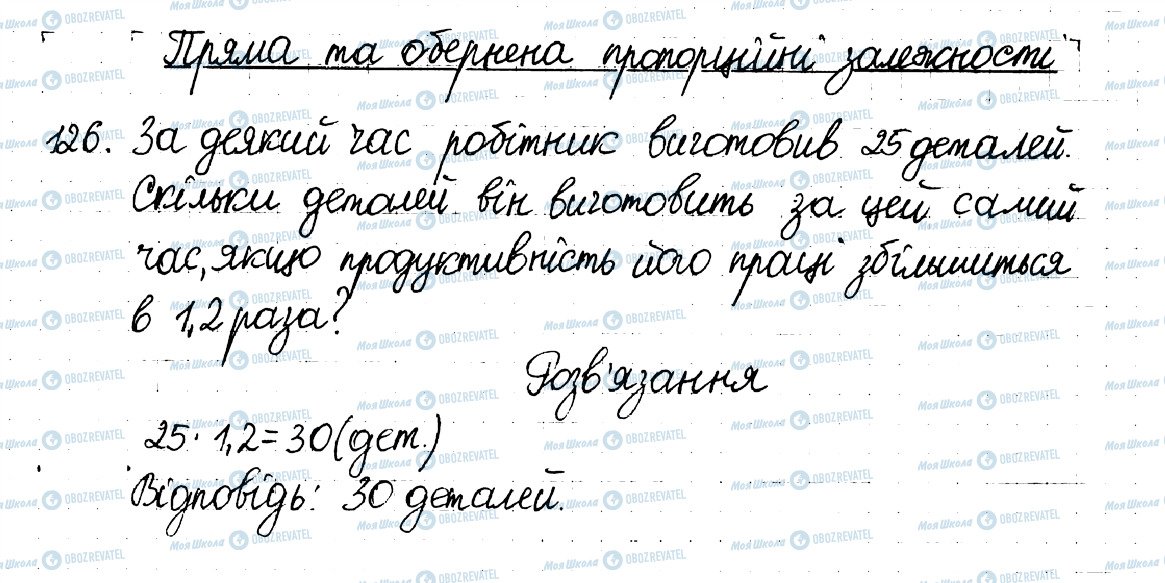 Пряма та обернена пропорційні залежности
126. За деякий час робітник виготовив 25 деталей.
Скільки деталей він виготовить за цей самий
час, якщо продуктивність його праці збільшиться
в 1,2 раза?
Розв'язання
25 · 1,2 = 30 (дет.)
Відповідь: 30 деталей.
Моя Школа OBOZREVATEL